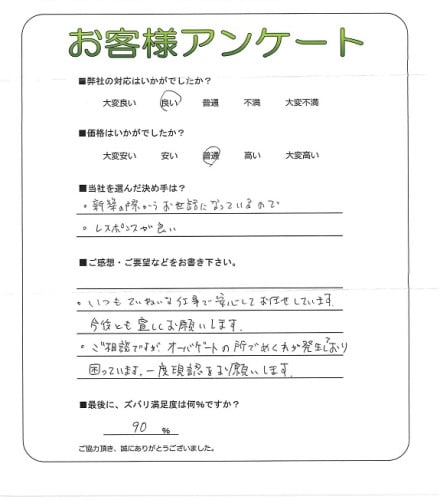 お客様アンケート
■弊社の対応はいかがでしたか？
大変良い 良い 普通 不満 大変不満
■価格はいかがでしたか？
大変安い 安い 普通 高い 大変高い
■当社を選んだ決め手は？
・新築の際からお世話になっているので
・レスポンスが良い
■ご感想・ご要望などをお書き下さい。
・いつもていねいな仕事で安心してお任せしています。
今後とも宜しくお願いします。
・ご相談ですが、オーバーゲートの所でめくれが発生しており
困っています。一度現認をお願いします。
■最後に、ズバリ満足度は何％ですか？
90 %
ご協力頂き、誠にありがとうございました。